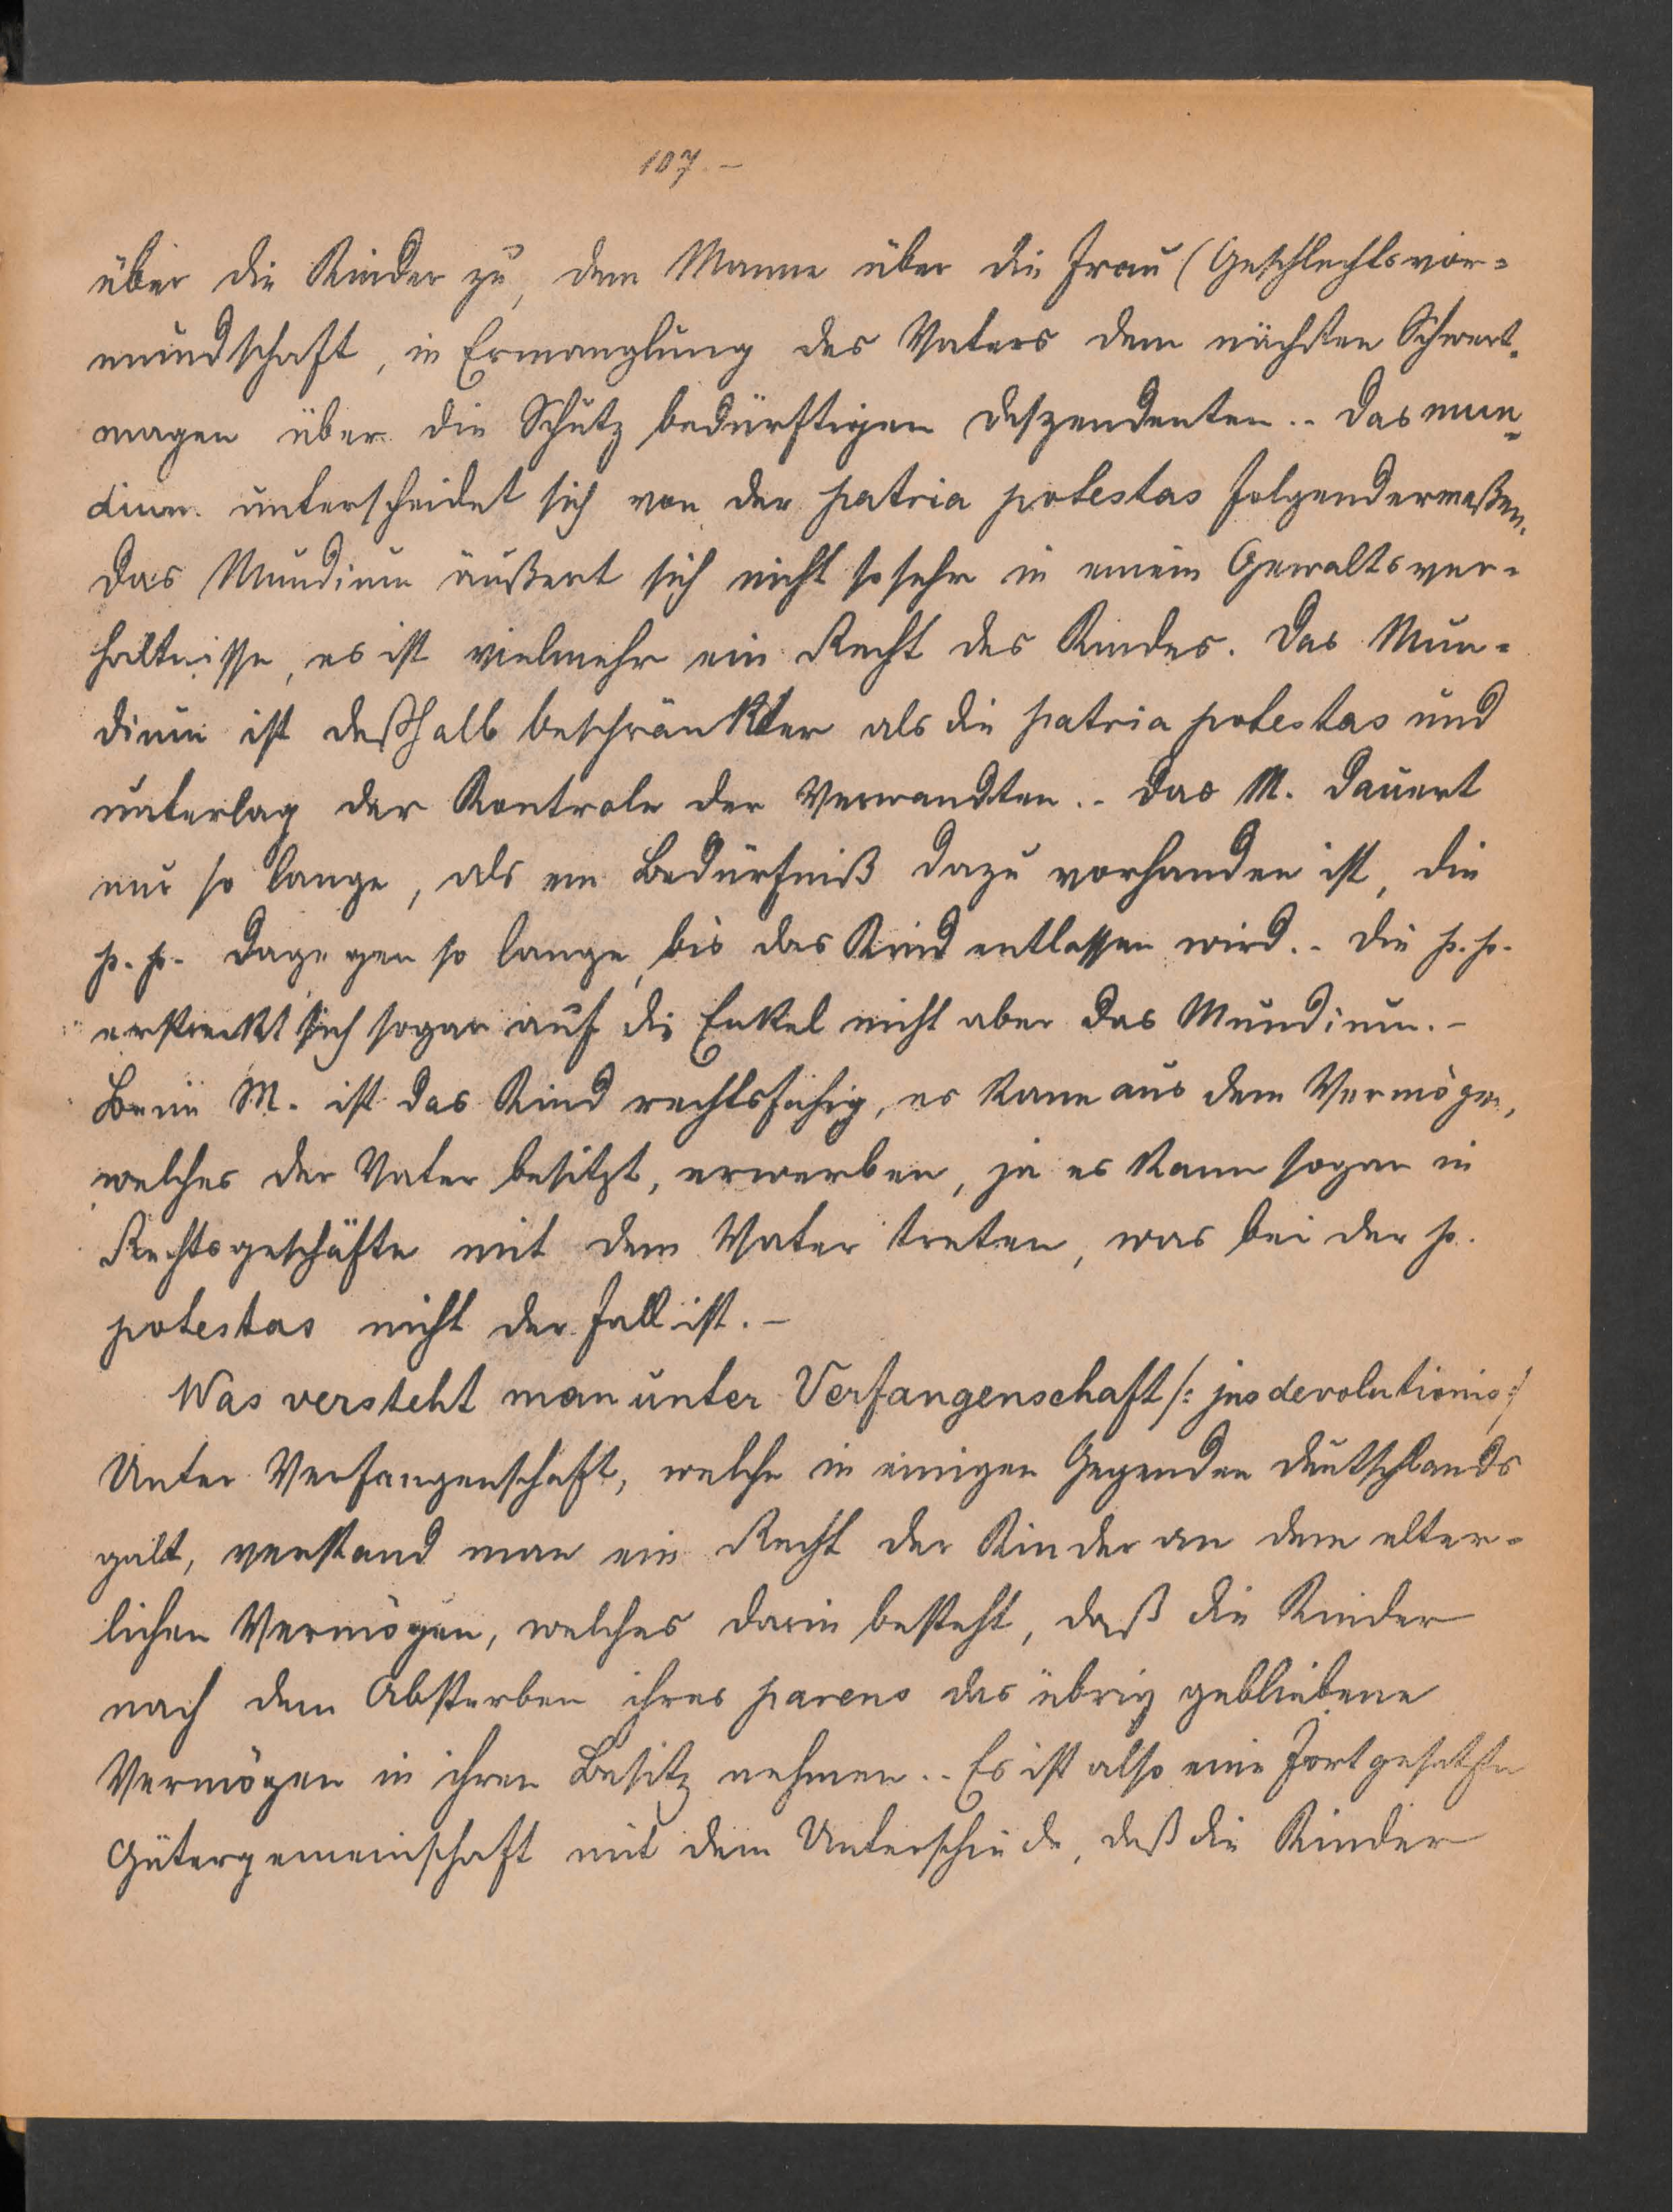 107.-
über die Kinder zu, dem Manne über die Frau (Geschlechtsvor-
mundschaft, in Ermanglung des Vaters dem nächsten Schwert-
magen über die Schutz bedürftigen Deszendenten.- Das mun-
dium unterscheidet sich von der patria potestas folgendermaßen.
Das Mundium äußert sich nicht so sehr in einem Gewaltsver-
hältnisse, es ist vielmehr ein Recht des Kindes. Das Mun-
dium ist deßhalb beschränkter als die patria potestas und
unterlag der Kontrole der Verwandten.- Das M. dauert
nur so lange, als ein Bedürfniß dazu vorhanden ist, die
p.p. dagegen so lange, bis das Kind entlassen wird.- Die p.p.
erstreckt sich sogar auf die Enkel nicht aber das Mundium.-
Beim M. ist das Kind rechtsfähig, es kann aus dem Vermögen,
welches der Vater besitzt, erwerben, ja es kann sogar in
Rechtsgeschäfte mit dem Vater treten, was bei der p.
potestas nicht der Fall ist.-
Was versteht man unter Verfangenschaft /: jus devolutionis :/
Unter Verfangenschaft, welche in einigen Gegenden Deutschlands
galt, verstand man ein Recht der Kinder an dem elter-
lichen Vermögen, welches darin besteht, daß die Kinder
nach dem Absterben ihres parens das übrig gebliebene
Vermögen in ihren Besitz nehmen.- Es ist also eine fortgesetzte
Gütergemeinschaft mit dem Unterschiede, daß die Kinder